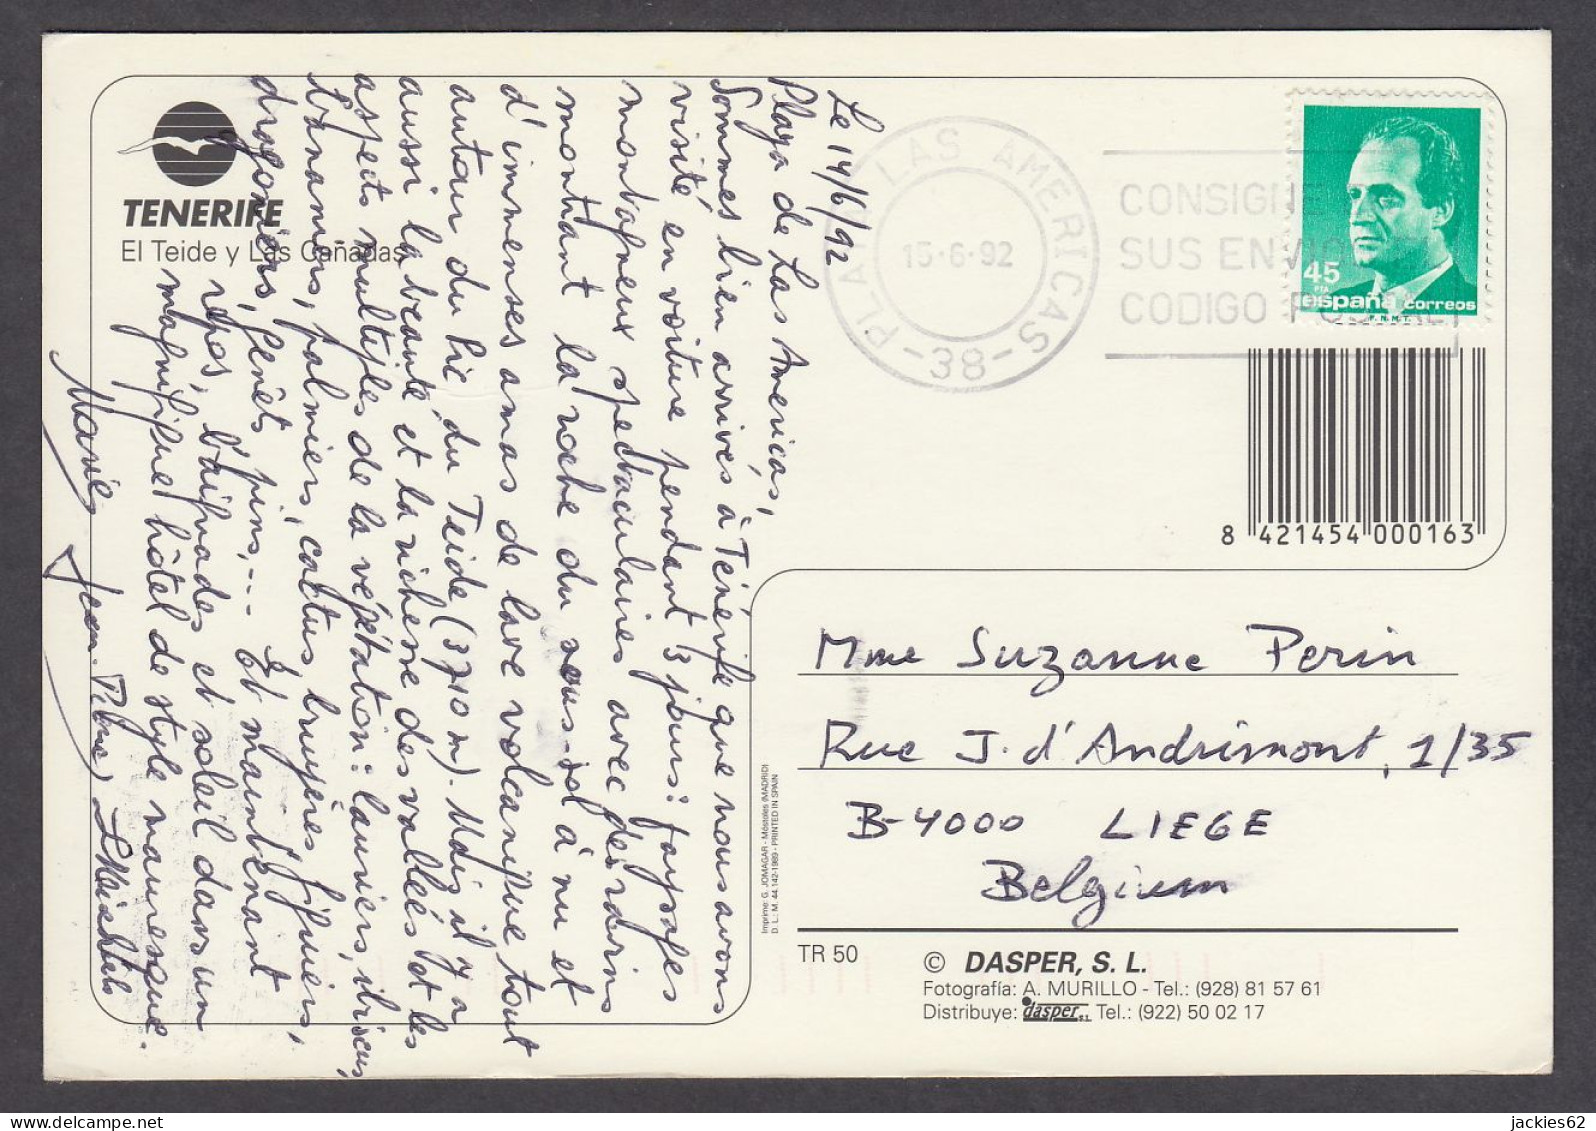 TENERIFE
El Teide y Las Cañadas
Le 14/6/92
Playa de Las Americas,
Sommes bien arrivés à Ténérife que nous avons
visité en voiture pendant 3 jours: paysages
montagneux spectaculaires avec des ravins
montrant la roche du sous-sol à nu et
d'immenses amas de lave volcanique tout
autour du Pic du Teide (3710 m). Mais il y a
aussi la beauté et la richesse des vallées et les
aspects multiples de la végétation: lauriers, ibiscus,
bananiers, palmiers, cactus, bruyères, figuiers,
dragoniers, genêts, pins, ... Et maintenant
repos, baignades et soleil dans un
magnifique hôtel de style mauresque.
Jean-Pierre
PLAYA LAS AMERICAS
15-6-92
-38-
CONSIGNE
SUS ENVIOS
CODIGO POSTAL
45
PTA
españa correos
F.N.M.T.
8 421454 000163
Mme Suzanne Perin
Rue J. d'Andrimont, 1/35
B-4000 LIEGE
Belgium
Imprime: G. JOMAGAR - Móstoles (MADRID)
D. L.: M. 44.142-1989 - PRINTED IN SPAIN
TR 50
© DASPER, S. L.
Fotografía: A. MURILLO - Tel.: (928) 81 57 61
Distribuye: dasper s.l. Tel.: (922) 50 02 17
jackies62